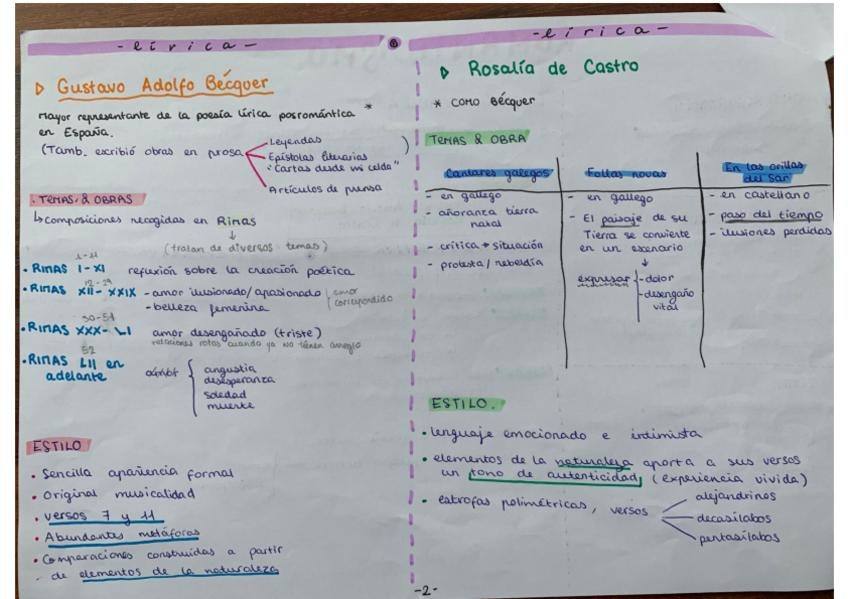 - lírica -
▷ Gustavo Adolfo Bécquer
Mayor representante de la poesía lírica posromántica *
en España.
(Tamb. escribió obras en prosa
Leyendas
Epístolas literarias
"Cartas desde mi celda"
Artículos de prensa
)
. TEMAS & OBRAS
↳ Composiciones recogidas en Rimas
↓
(tratan de diversos temas)
1-11
• RIMAS I-XI reflexión sobre la creación poética
12-29
• RIMAS XII-XXIX - amor ilusionado/apasionado
- belleza femenina
amor
correspondido
30-51
• RIMAS XXX-LI amor desengañado (triste)
relaciones rotas cuando ya no tienen arreglo
52
• RIMAS LII en
adelante
angustia
desesperanza
soledad
muerte
ESTILO
• Sencilla apariencia formal
• Original musicalidad
• versos 7 y 11
• Abundantes metáforas
• Comparaciones construidas a partir
- de elementos de la naturaleza
- lírica -
▷ Rosalía de Castro
* COMO BÉCQUER
TEMAS & OBRA
Cantares gallegos
- en gallego
- añoranza tierra
natal
- crítica → situación
- protesta / rebeldía
Follas novas
- en gallego
- El paisaje de su
Tierra se convierte
en un escenario
↓
expresar
- dolor
- desengaño
vital
En las orillas
del Sar
- en castellano
- paso del tiempo
- ilusiones perdidas
ESTILO.
• lenguaje emocionado e intimista
• elementos de la naturaleza aporta a sus versos
un tono de autenticidad (experiencia vivida)
• estrofas polimétricas, versos
alejandrinos
decasílabos
pentasílabos
-2-